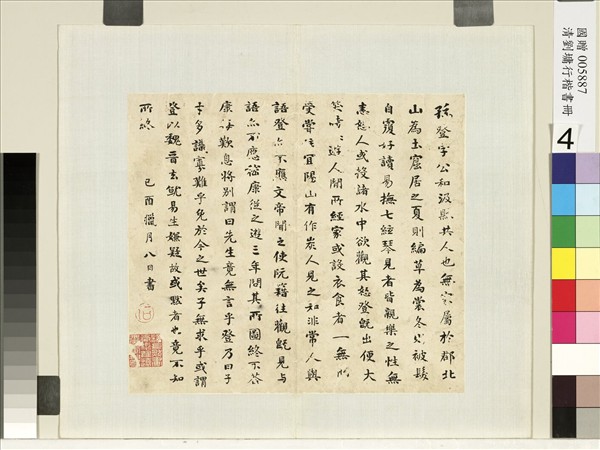 孫登字公和汲縣共人也無家屬於郡北
山為土窟居之夏則編草為裳冬則被髮
自覆好讀易撫一絃琴見者皆親樂之性無
恚怒人或投諸水中欲觀其怒登既出便大
笑時時遊人間所經家或設衣食者一無所
受嘗住宜陽山有作炭人見之知非常人與
語登亦不應文帝聞之使阮籍往觀既見與
語亦不應嵇康從之遊三年問其所圖終不答
康每歎息將別謂曰先生竟無言乎登乃曰子
才多識寡難乎免於今之世矣子無求乎或謂
登以魏晉去就易生嫌疑故或默者也竟不知
所終
己酉獵月八日書
國贈 005887
清劉墉行楷書冊
4